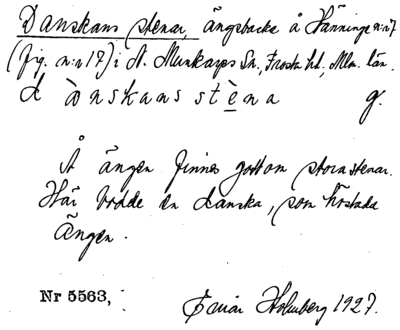 Danskans stenar, ängsbacke å Hänninge n:r 7
(fig. n:r 17) i S. Munkarps Sn., Frosta hd., Mlm. län.
d ànskans stèna g.
Å ängen finnes gott om stora stenar.
Här bodde en danska, som höstade
ängen.
Nr 5563, Holmberg 1927.